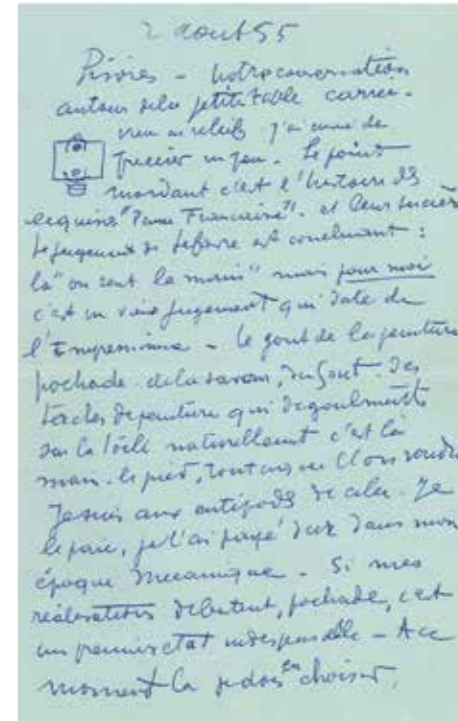 2 aout 55
Notre conversation
autour de la petite table carrée -
J'ai envie de
préciser un peu. Le point
mordant c'est l'histoire des
et leur succès
Le jugement de est concluant :
là "on sent la main" mais pour moi
c'est un vieux jugement qui date de
l'Impressionisme - le gout de la peinture
pochade. de la saveur, du gout des
taches de peinture qui degoulinent
sur la toile naturellement c'est la
main. le pied, tout ce que l'on voudra
Je suis aux antipodes de cela. Je
le paie, je l'ai payé dans mon
époque mecanique - Si mes
réalisations debutent, pochade, c'est
un premier état indispensable - A ce
moment la je dois en choisir,